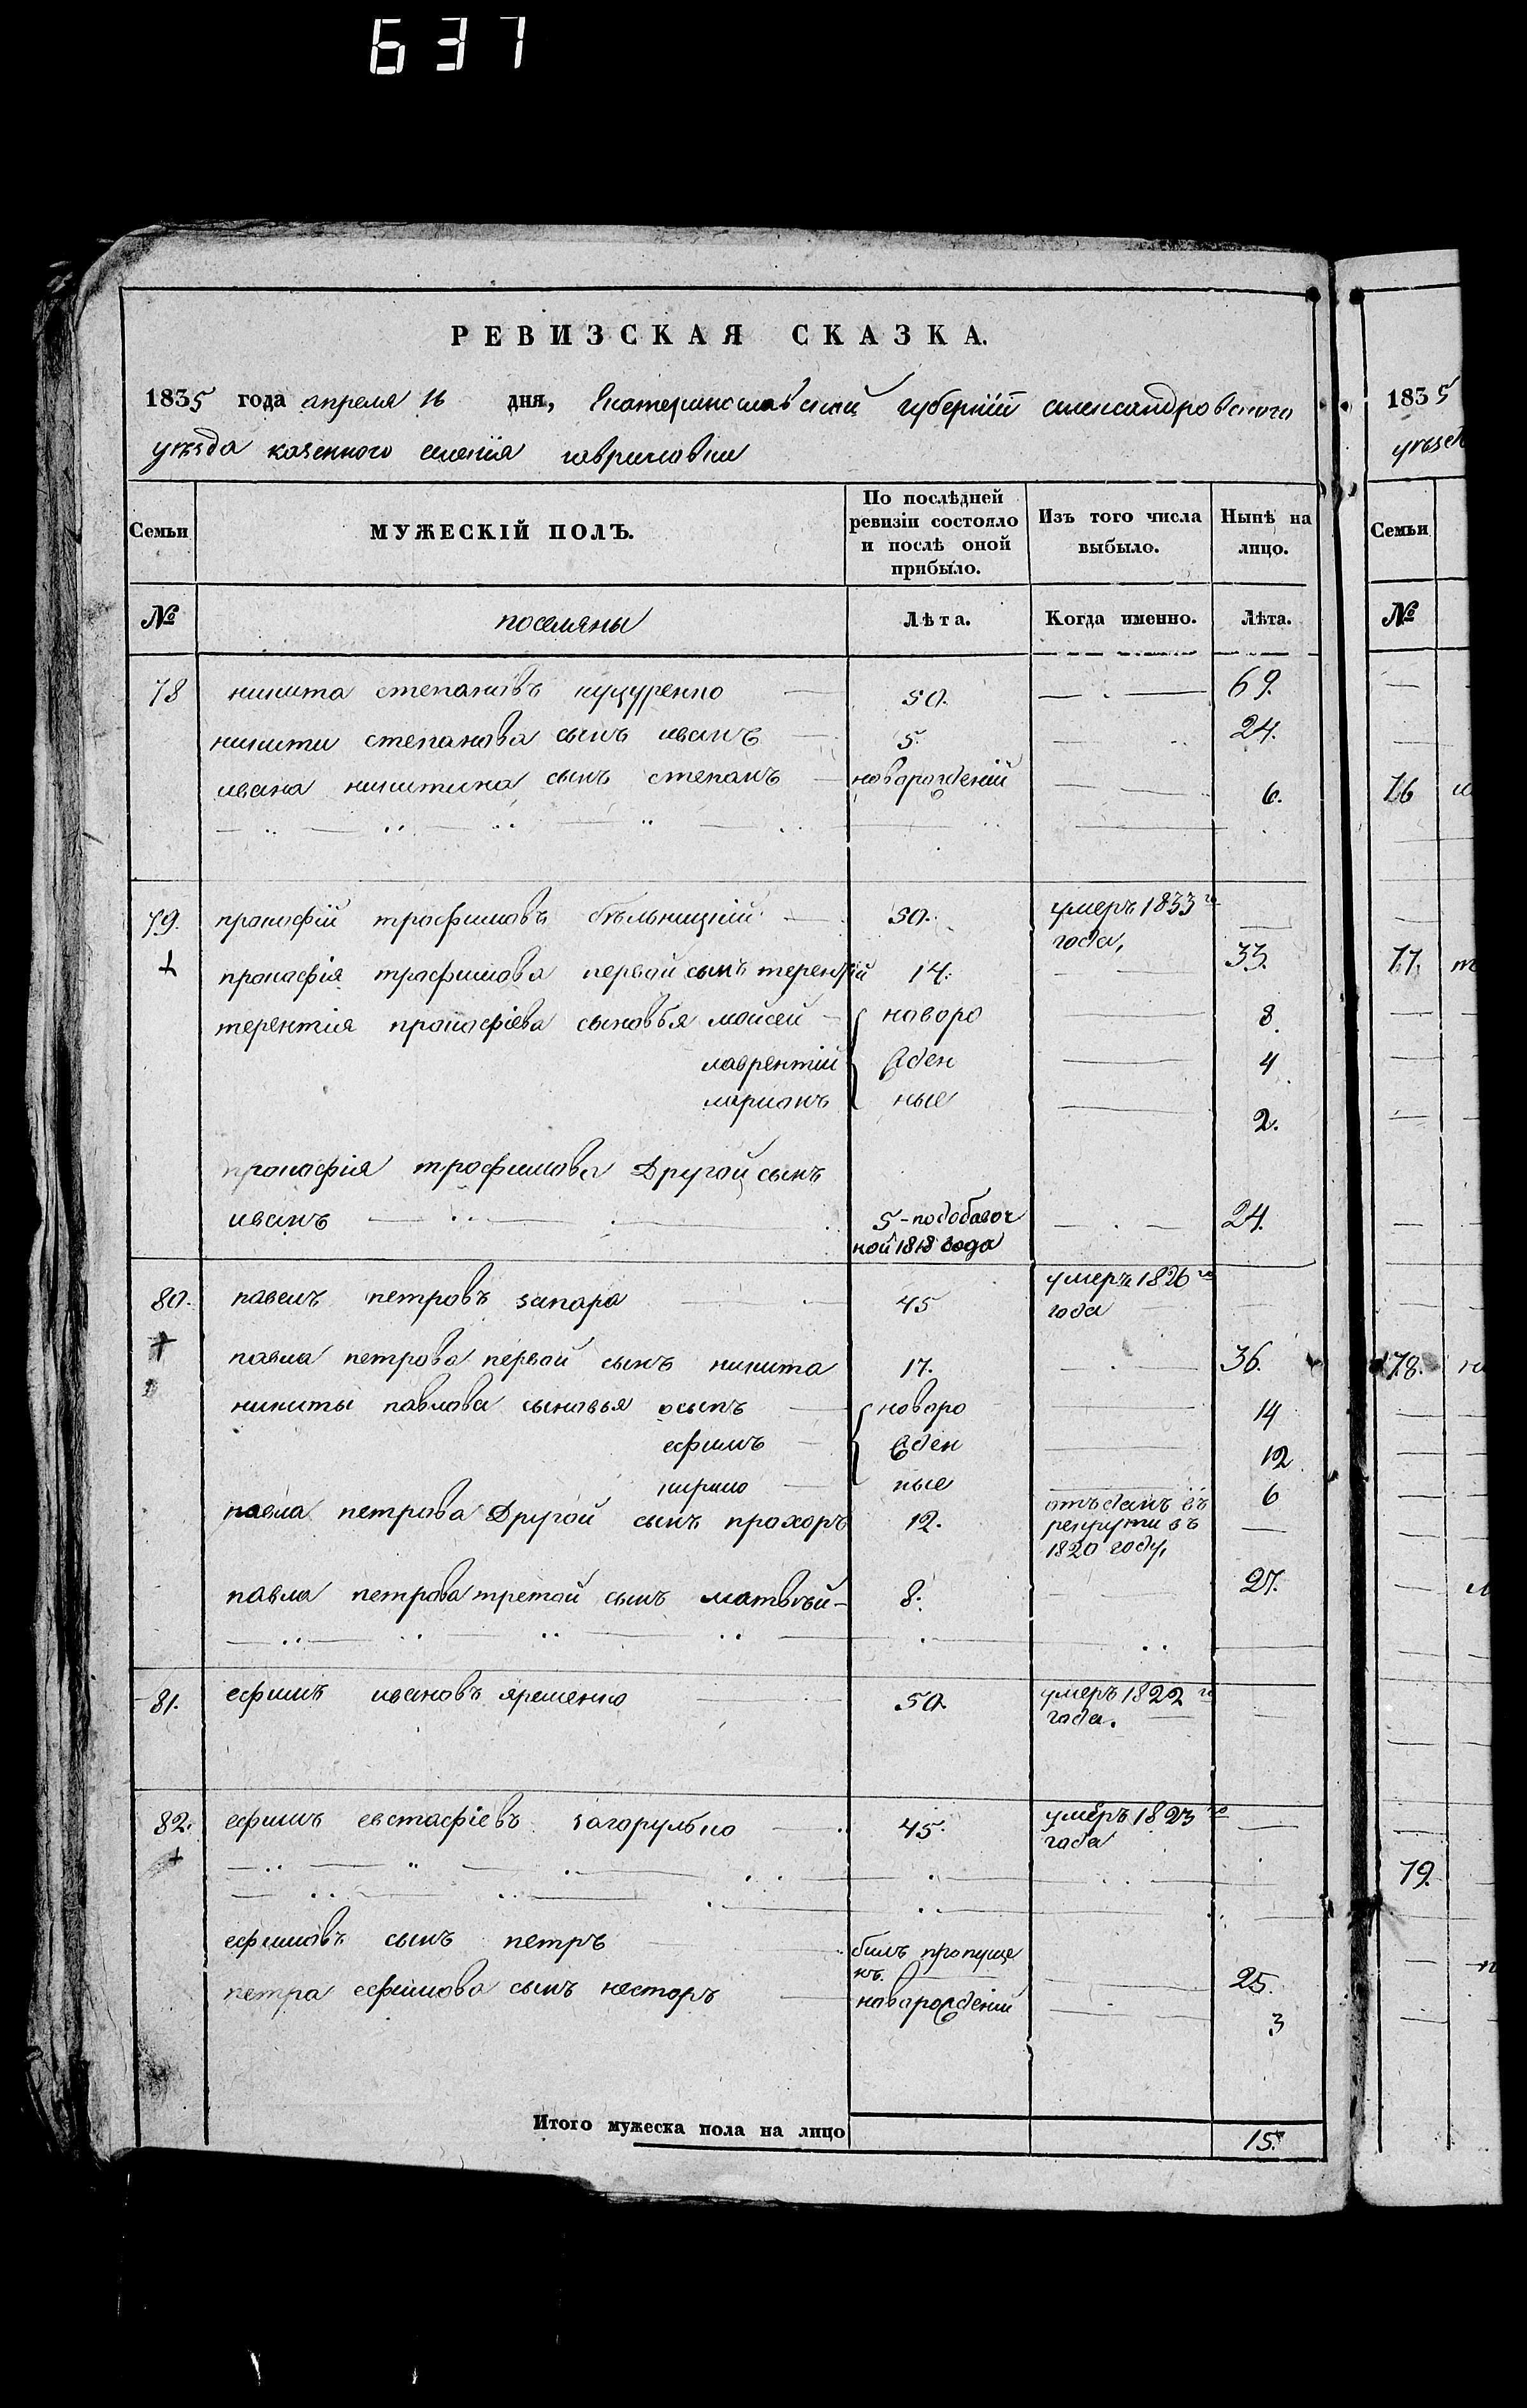 637
РЕВИЗСКАЯ СКАЗКА.
1835 года апреля 16 дня, Екатеринославской губерніи александровского
уѣзда казенного селенія гавриловки
Семьи
МУЖЕСКІЙ ПОЛЪ.
По послѣдней ревизіи состояло и послѣ оной прибыло.
Изъ того числа выбыло.
Нынѣ на лицо.
№ поселяны Лѣта. Когда именно. Лѣта.
78 никита степановъ куцуренко 50. 69.
никити степанова сынъ иванъ 5. 24.
ивана никитина сынъ степанъ новорожденій 6.
79. прокофій трофимовъ бѣльницкій 50. умеръ 1833го года,
прокофія трофимова первой сынъ терентій 14. 33.
терентія прокофіева сыновья моисей новоро 8.
лаврентій жден 4
марианъ ные 2.
прокофія трофимова Другой сынъ
иванъ 5-пододавоч 24.
ной 1818 года
80. павелъ петровъ запара 45 умеръ 1826го года
павла петрова первой сынъ никита 17. 36.
никиты павлова сыновья осыпъ новоро 14
ефимъ жден 12
кирило ные 6
павла петрова Другой сынъ прохоръ 12. отъданъ въ рекрути въ 1820 году,
павла петрова третой сынъ матвѣй 8. 27.
81. ефимъ ивановъ яременко 50. умеръ 1822го года.
82. ефимъ евстафіевъ загорулько 45. умеръ 1823го года
ефимовъ сынъ петръ билъ пропуще
нъ. 25.
петра ефимова сынъ несторъ новорожденій 3
Итого мужеска пола на лицо 15.
1835
уѣзд
Семьи
№
76
77.
78.
79.